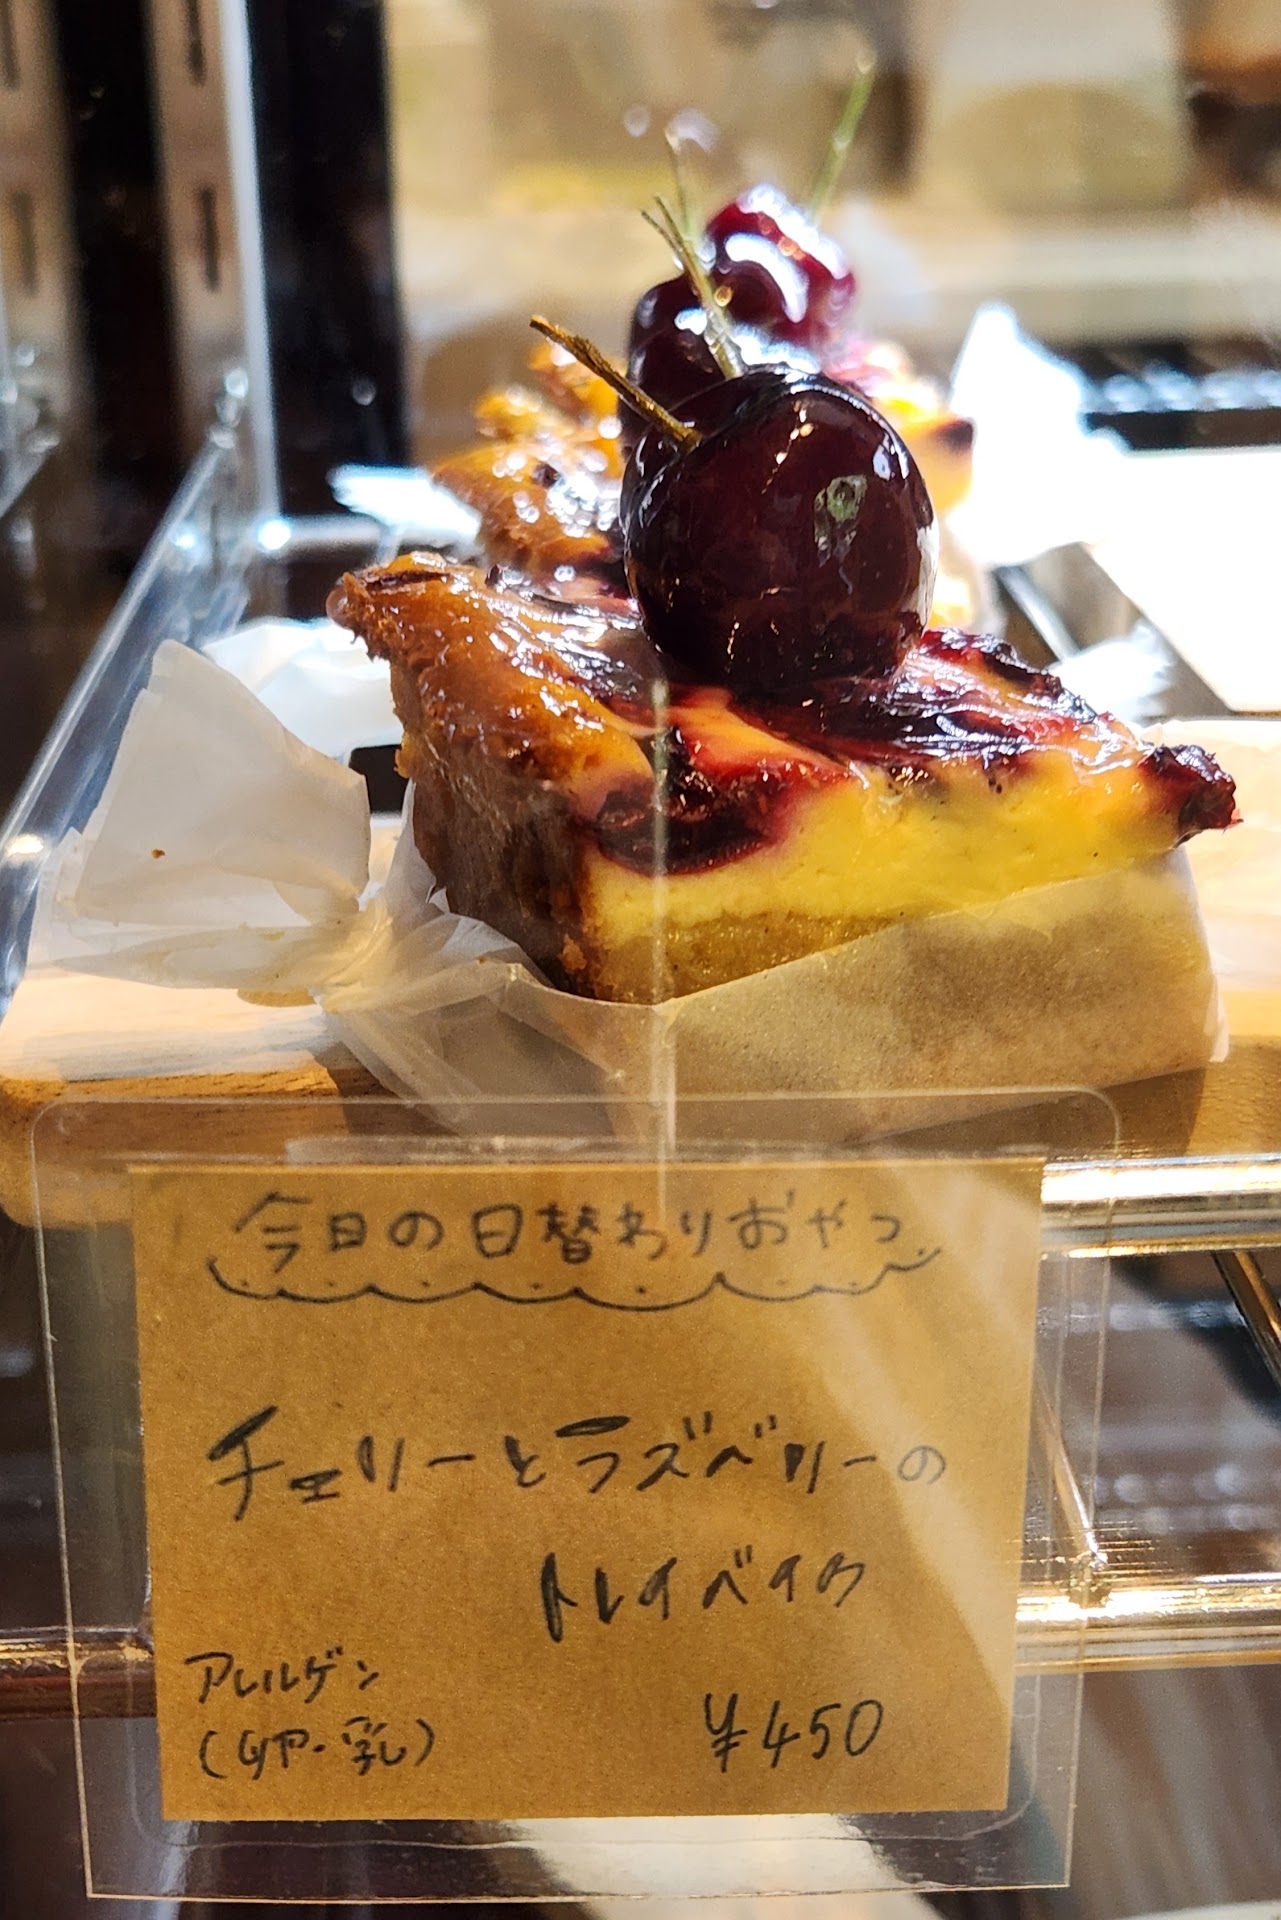 今日の日替わりおやつ
チェリーとラズベリーの
トレイベイク
アレルゲン
(卵・乳)
¥450